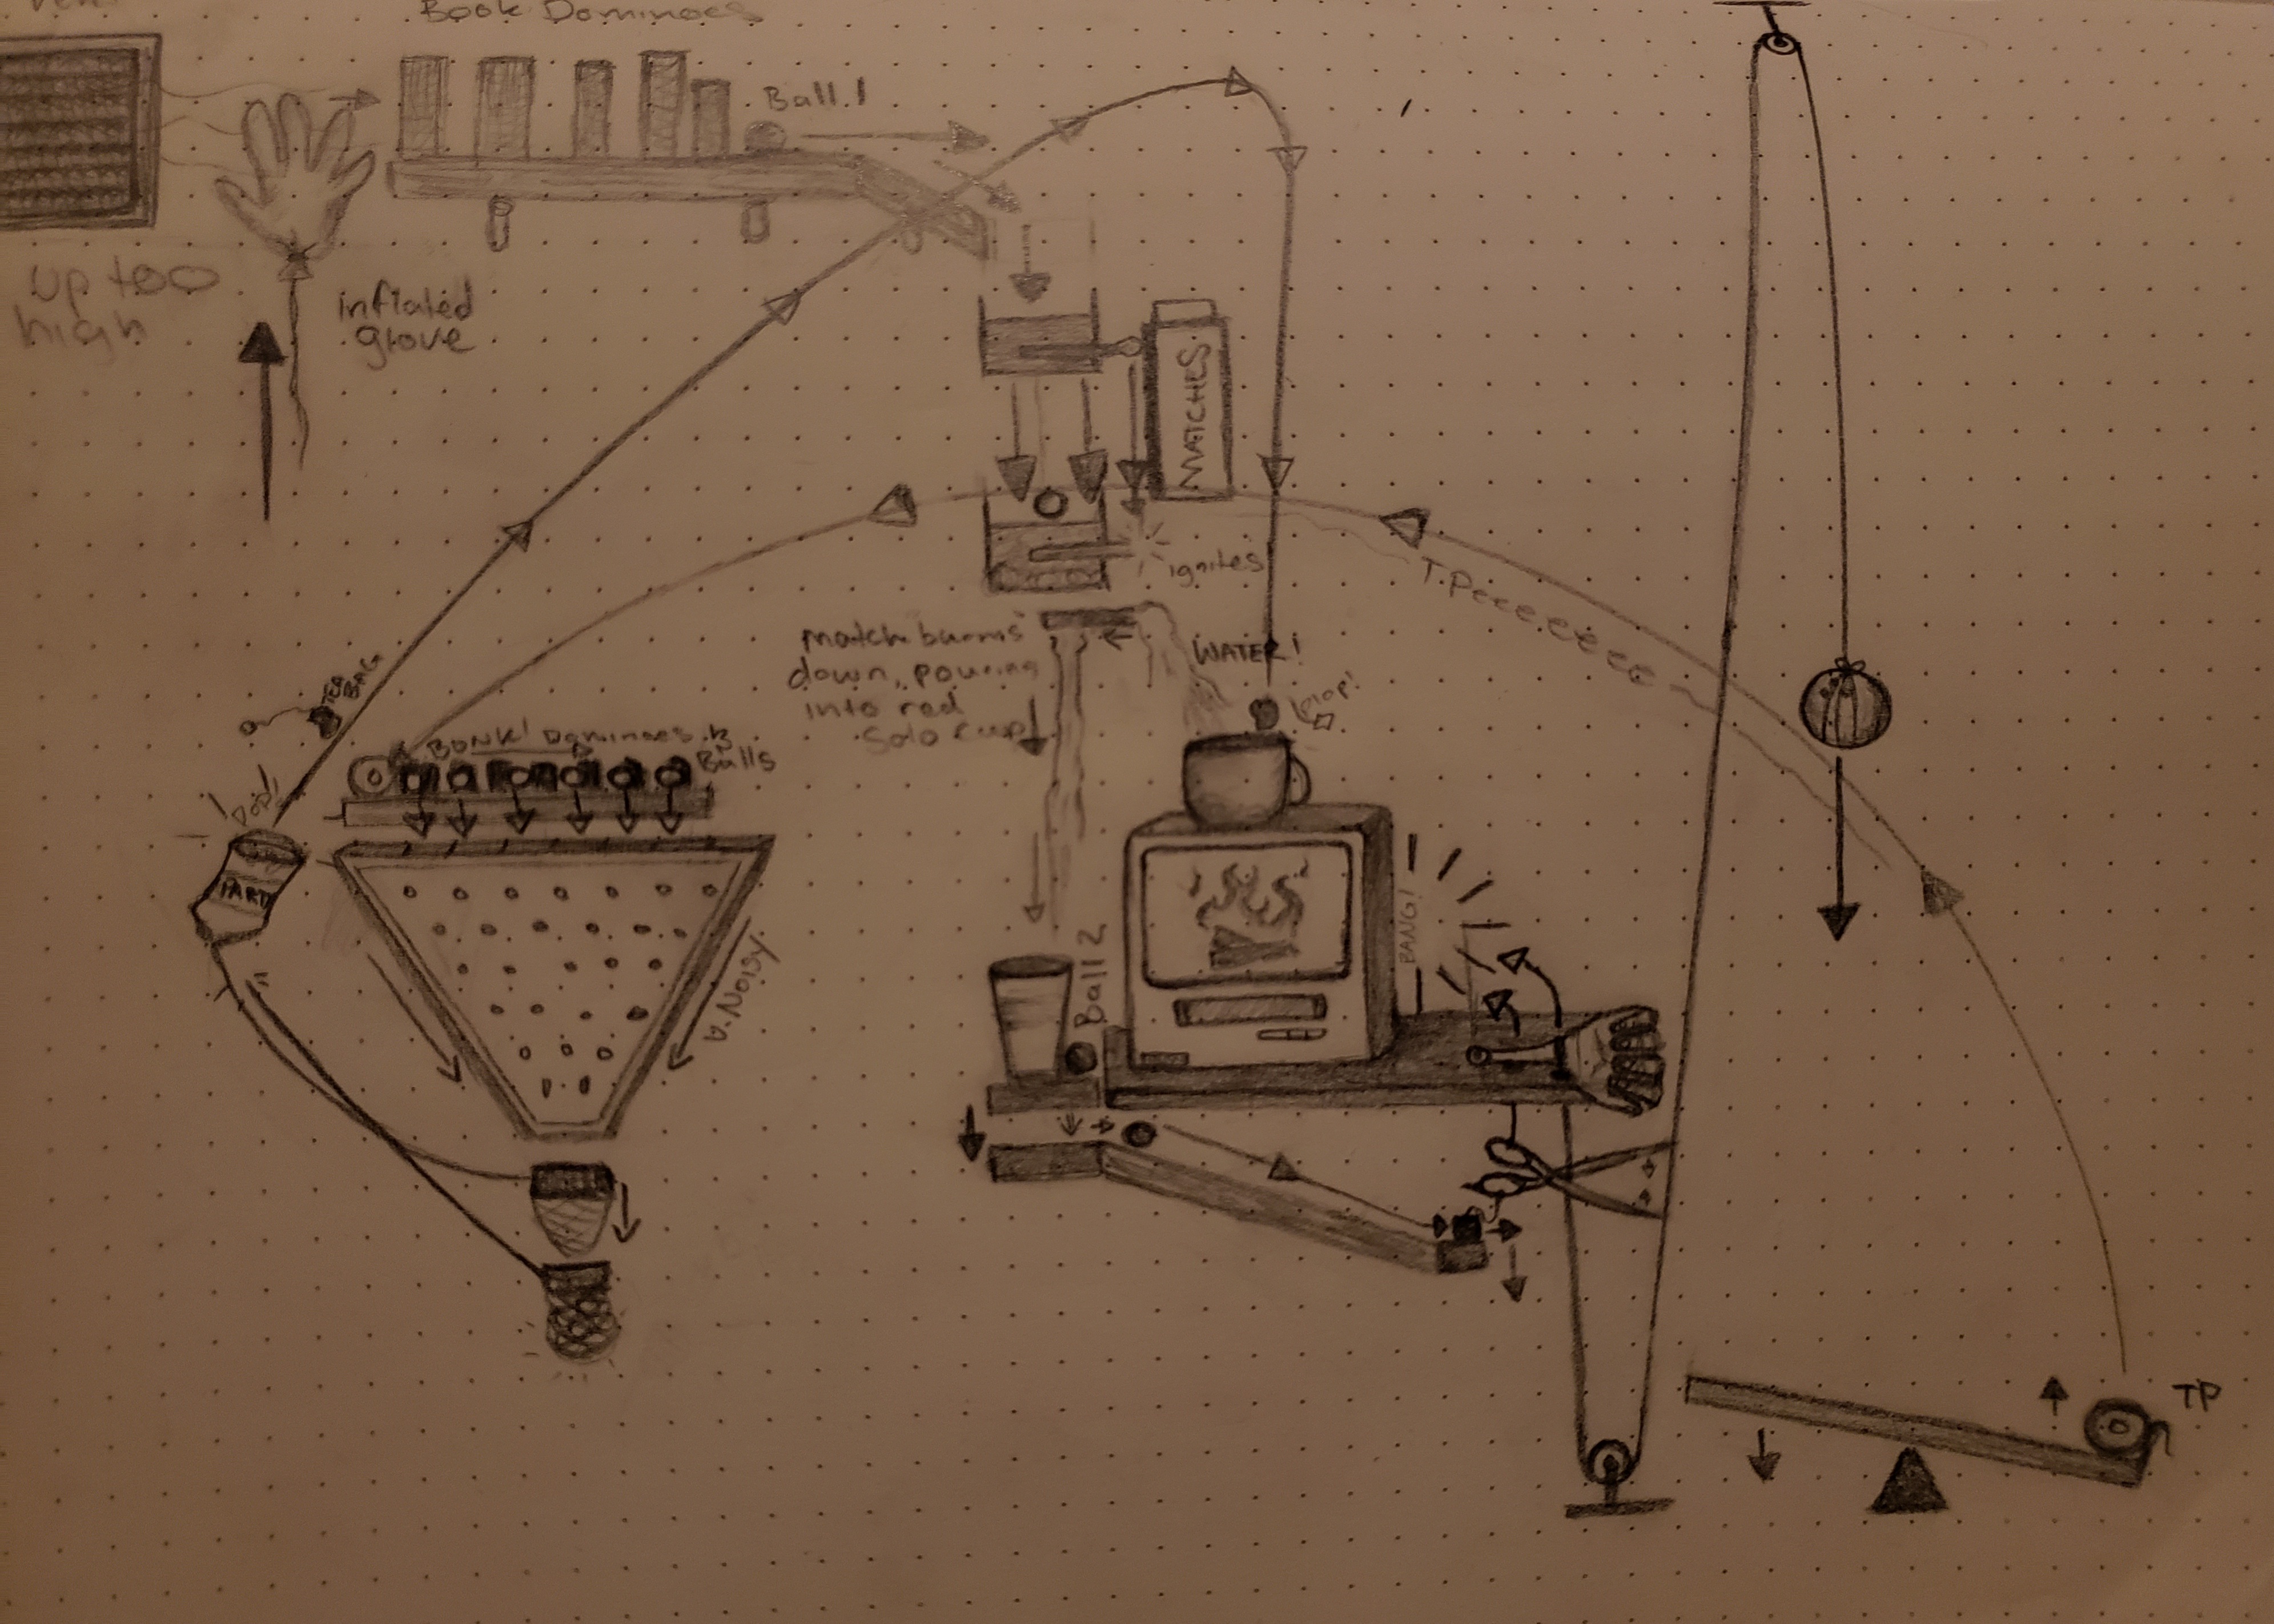 Book Dominoes
Ball 1
up too
high
inflated
glove
MATCHES
ignites
TPeeeeeeeeee
match burns
down, pouring
into red
Solo cup
WATER!
plop!
TEA
BAG
BONK! Dominoes &
Balls
pop!
PARTY
v. Noisy
Ball 2
BANG!
TP